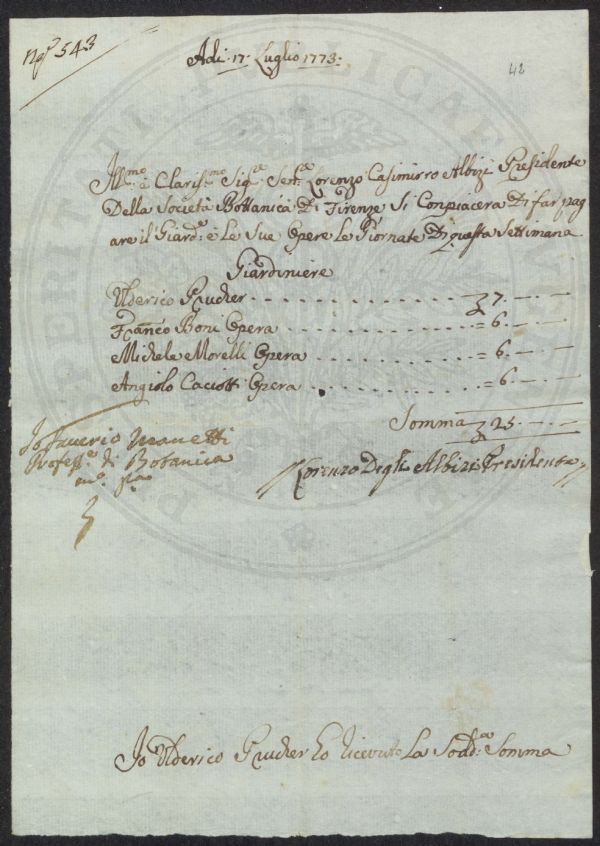 N.° 543
Adi 17: Luglio 1773:
42
Ill.mo e Claris.mo Sig.re Sen.re Lorenzo Casimirro Albizi Presidente
Della Società Bottanica Di Firenze Si Conpiacera Di far pag
are il Giard.e e Le Sue Opere Le Giornate Di questa Settimana
Giardiniere
Ulderico Prucker 7
Fran.co Boni Opera = 6
Michele Morelli Opera = 6
Angiolo Caciotti Opera = 6
Somma 25
Io Saverio Manetti
Profess.e di Botanica
m.o p.a
Lorenzo Degli Albizi Presidente
Io Ulderico Prucker ho Ricevuto La Sodd.a Somma